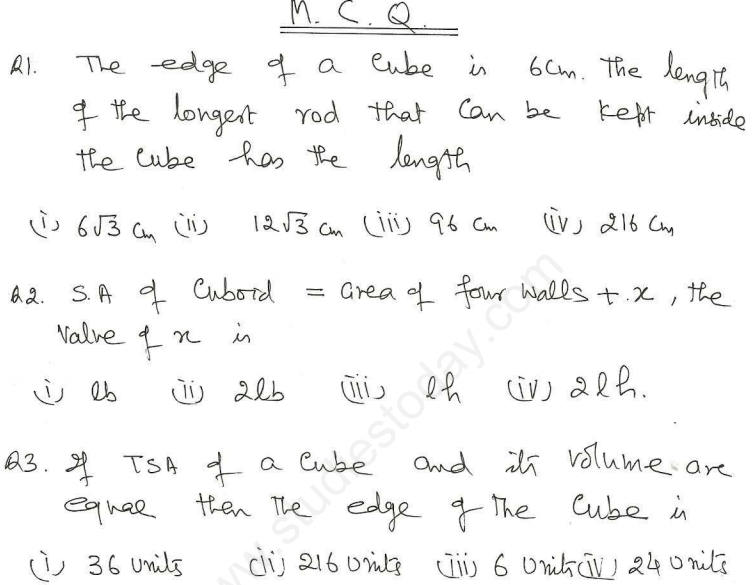 M. C. Q.
Q1. The edge of a cube is 6cm. The length
of the longest rod that can be kept inside
the cube has the length
(i) 6√3 cm (ii) 12√3 cm (iii) 96 cm (iv) 216 cm
Q2. S.A of Cuboid = area of four walls + x, the
value of x is
(i) lb (ii) 2lb (iii) lh (iv) 2lh.
Q3. If TSA of a cube and its volume are
equal then the edge of the cube is
(i) 36 units (ii) 216 units (iii) 6 units (iv) 24 units
www.studiestoday.com